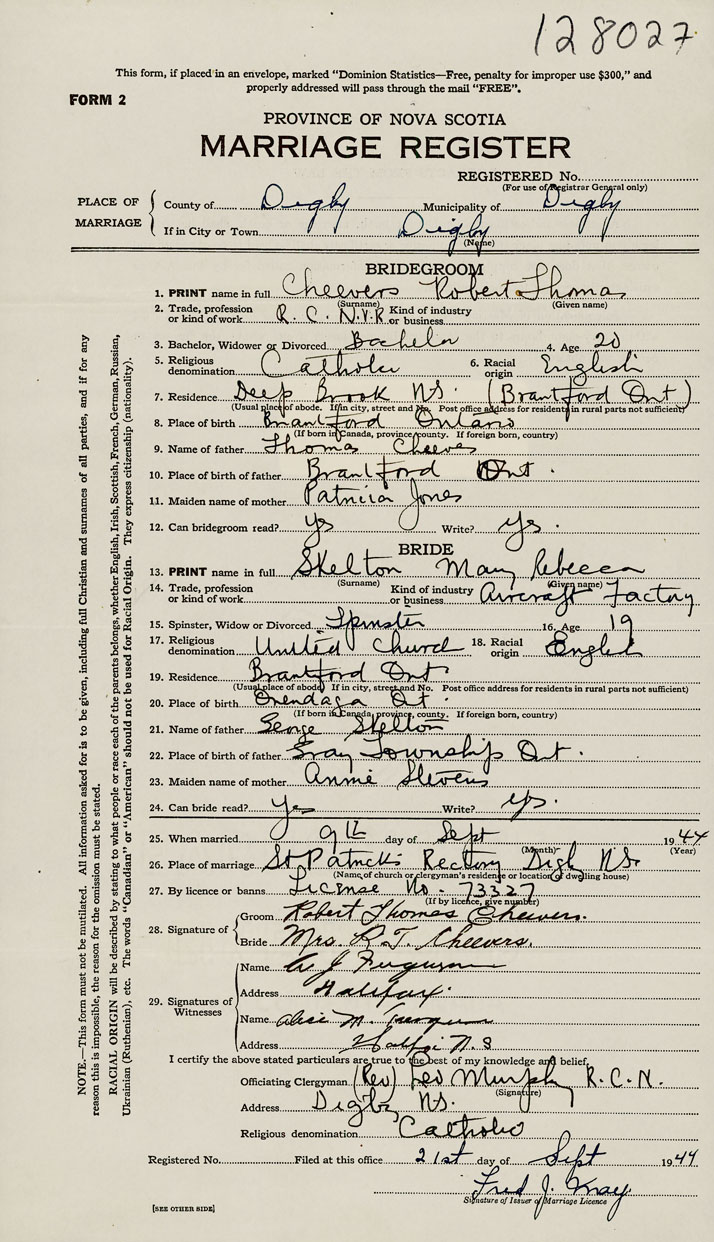 128027
This form, if placed in an envelope, marked "Dominion Statistics—Free, penalty for improper use $300," and
properly addressed will pass through the mail "FREE".
FORM 2
PROVINCE OF NOVA SCOTIA
MARRIAGE REGISTER
REGISTERED No.
(For use of Registrar General only)
PLACE OF MARRIAGE
County of Digby Municipality of Digby
If in City or Town Digby
(Name)
BRIDEGROOM
1. PRINT name in full Cheevers Robert Thomas
(Surname) (Given name)
2. Trade, profession or kind of work R.C.N.V.R. Kind of industry or business
3. Bachelor, Widower or Divorced Bachelor 4. Age 20
5. Religious denomination Catholic 6. Racial origin English
7. Residence Deep Brook NS. (Brantford Ont)
(Usual place of abode. If in city, street and No. Post office address for residents in rural parts not sufficient)
8. Place of birth Brantford Ontario
(If born in Canada, province, county. If foreign born, country)
9. Name of father Thomas Cheevers
10. Place of birth of father Brantford Ont.
11. Maiden name of mother Patricia Jones
12. Can bridegroom read? yes Write? yes.
BRIDE
13. PRINT name in full Skelton Mary Rebecca
(Surname) (Given name)
14. Trade, profession or kind of work Kind of industry or business Aircraft Factory
15. Spinster, Widow or Divorced Spinster 16. Age 19
17. Religious denomination United Church 18. Racial origin English
19. Residence Brantford Ont
(Usual place of abode) If in city, street and No. Post office address for residents in rural parts not sufficient)
20. Place of birth Onondaga Ont.
(If born in Canada, province, county. If foreign born, country)
21. Name of father George Skelton
22. Place of birth of father Gray Township Ont.
23. Maiden name of mother Annie Stevens
24. Can bride read? Yes Write? yes.
25. When married 9th day of Sept 1944
(Month) (Year)
26. Place of marriage St Patricks Rectory Digby NS.
(Name of church or clergyman's residence or location of dwelling house)
27. By licence or banns License No. 73327
(If by licence, give number)
28. Signature of
Groom Robert Thomas Cheevers.
Bride Mrs. R.T. Cheevers.
29. Signatures of Witnesses
Name A J Ferguson
Address Halifax.
Name Alice M. Ferguson
Address Halifax N.S
I certify the above stated particulars are true to the best of my knowledge and belief.
Officiating Clergyman (Rev) Leo Murphy R.C.N.
(Signature)
Address Digby NS.
Religious denomination Catholic
Registered No. Filed at this office 21st day of Sept 1944
Fred J. Kray
Signature of Issuer of Marriage Licence
[SEE OTHER SIDE]
NOTE.—This form must not be mutilated. All information asked for is to be given, including full Christian and surnames of all parties, and if for any
reason this is impossible, the reason for the omission must be stated.
RACIAL ORIGIN will be described by stating to what people or race each of the parents belongs, whether English, Irish, Scottish, French, German, Russian,
Ukrainian (Ruthenian), etc. The words "Canadian" or "American" should not be used for Racial Origin. They express citizenship (nationality).